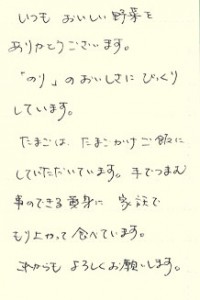 いつも おいしい野菜を
ありがとうございます。
「のり」のおいしさに びっくり
しています。
たまごは、たまごかけご飯に
していただいています。手でつまむ
事のできる黄身に 家族で
もり上がって食べています。
これからも よろしくお願いします。